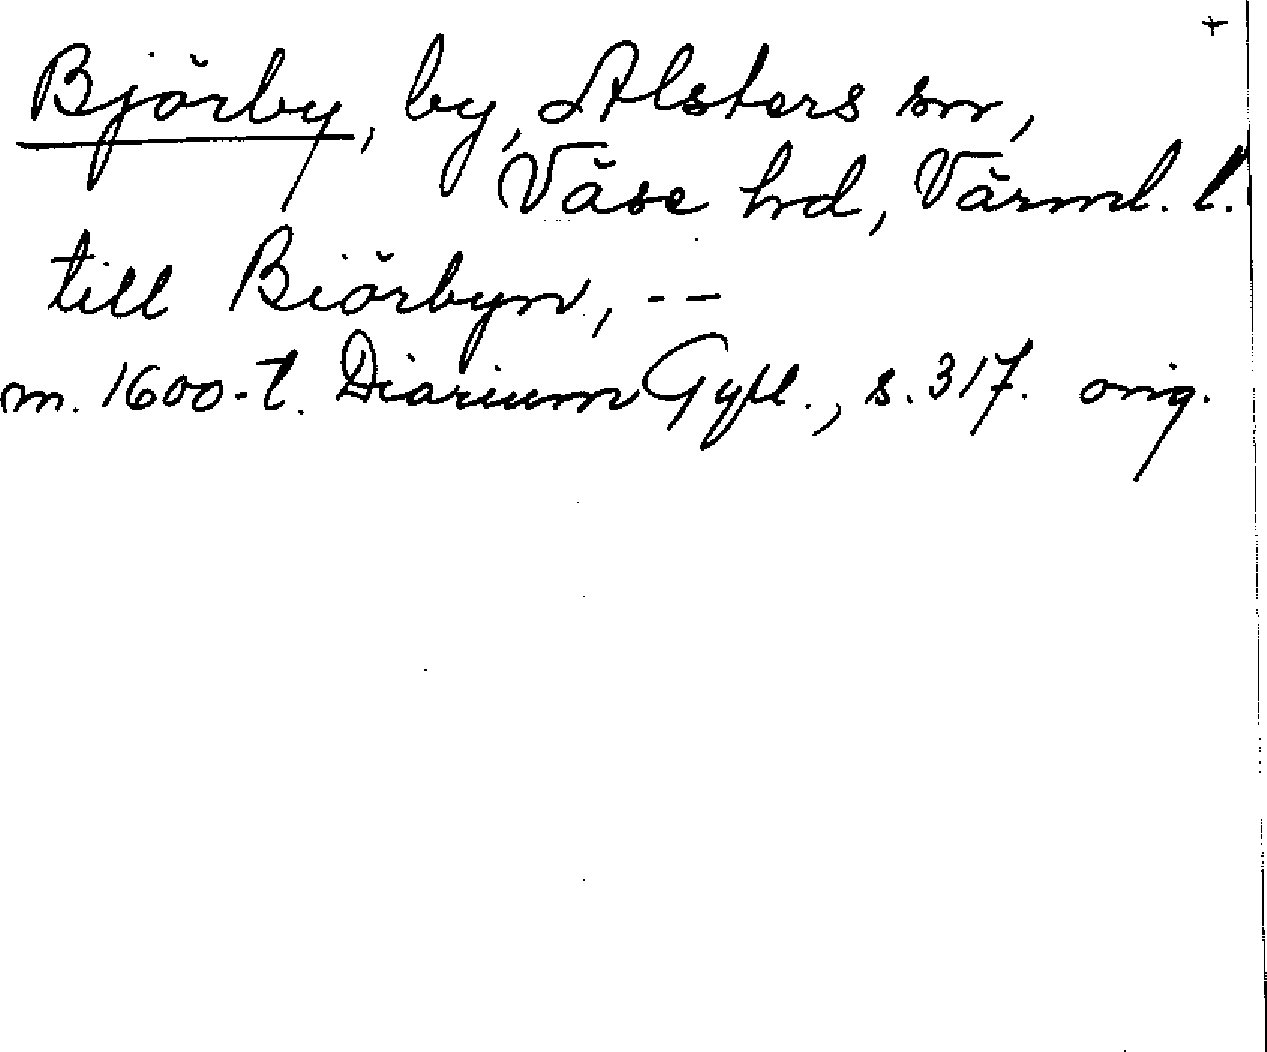 +
Björby, by, Alsters sn,
Väse hd, Värml. l.
till Biörbyn, --
m. 1600-t. Diarium Gyll., s. 317. orig.